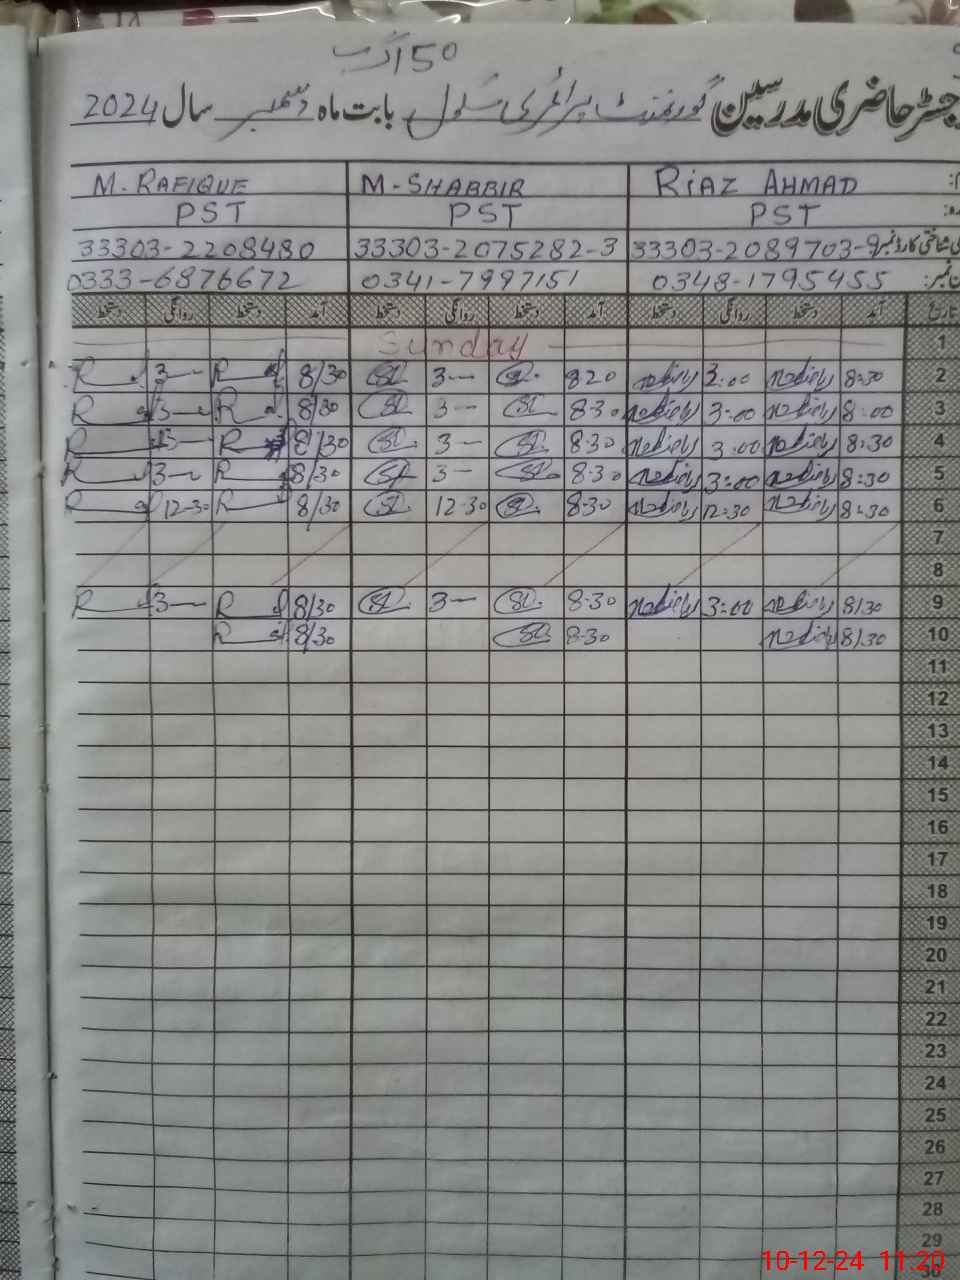 150
جسٹر حاضری مدرسین گورنمنٹ پرائمری سکول بابت ماہ دسمبر سال 2024
M. RAFIQUE M-SHABBIR RIAZ AHMAD
PST PST PST
33303-2208480 33303-2075282-3 33303-2089703-9
0333-6876672 0341-7997151 0348-1795455
تاریخ آمد دستخط روانگی دستخط آمد دستخط روانگی دستخط آمد دستخط روانگی دستخط
Sunday 1
3 8/30 3 820 3:00 8:30 2
3 8/30 3 8-30 3:00 8:00 3
3 8/30 3 8-30 3:00 8:30 4
3 8/30 3 8-30 3:00 8:30 5
12-30 8/30 12-30 8-30 12:30 8:30 6
7
8
3 8/30 3 8-30 3:00 8/30 9
8/30 8-30 8/30 10
11
12
13
14
15
16
17
18
19
20
21
22
23
24
25
26
27
28
29
30
10-12-24 11:20